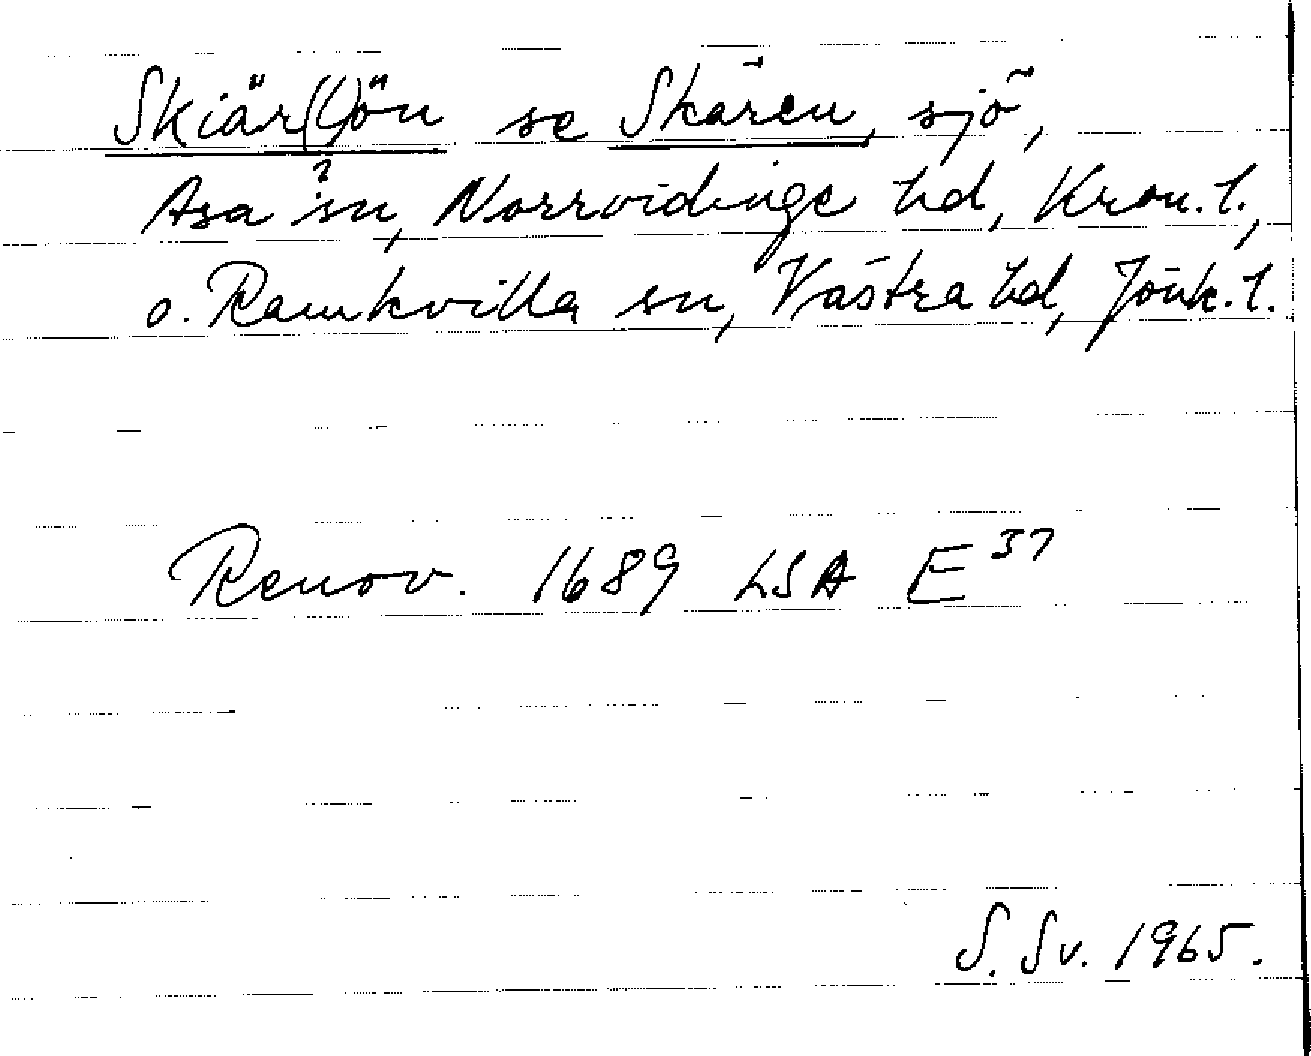 Skiär(l)ön se Skären, sjö,
?
Asa sn, Norrvidinge hd, Kron. l.,
o. Ramkvilla sn, Västra hd, Jönk. l.
Renov. 1689 LSA E 37
S. Sv. 1965.